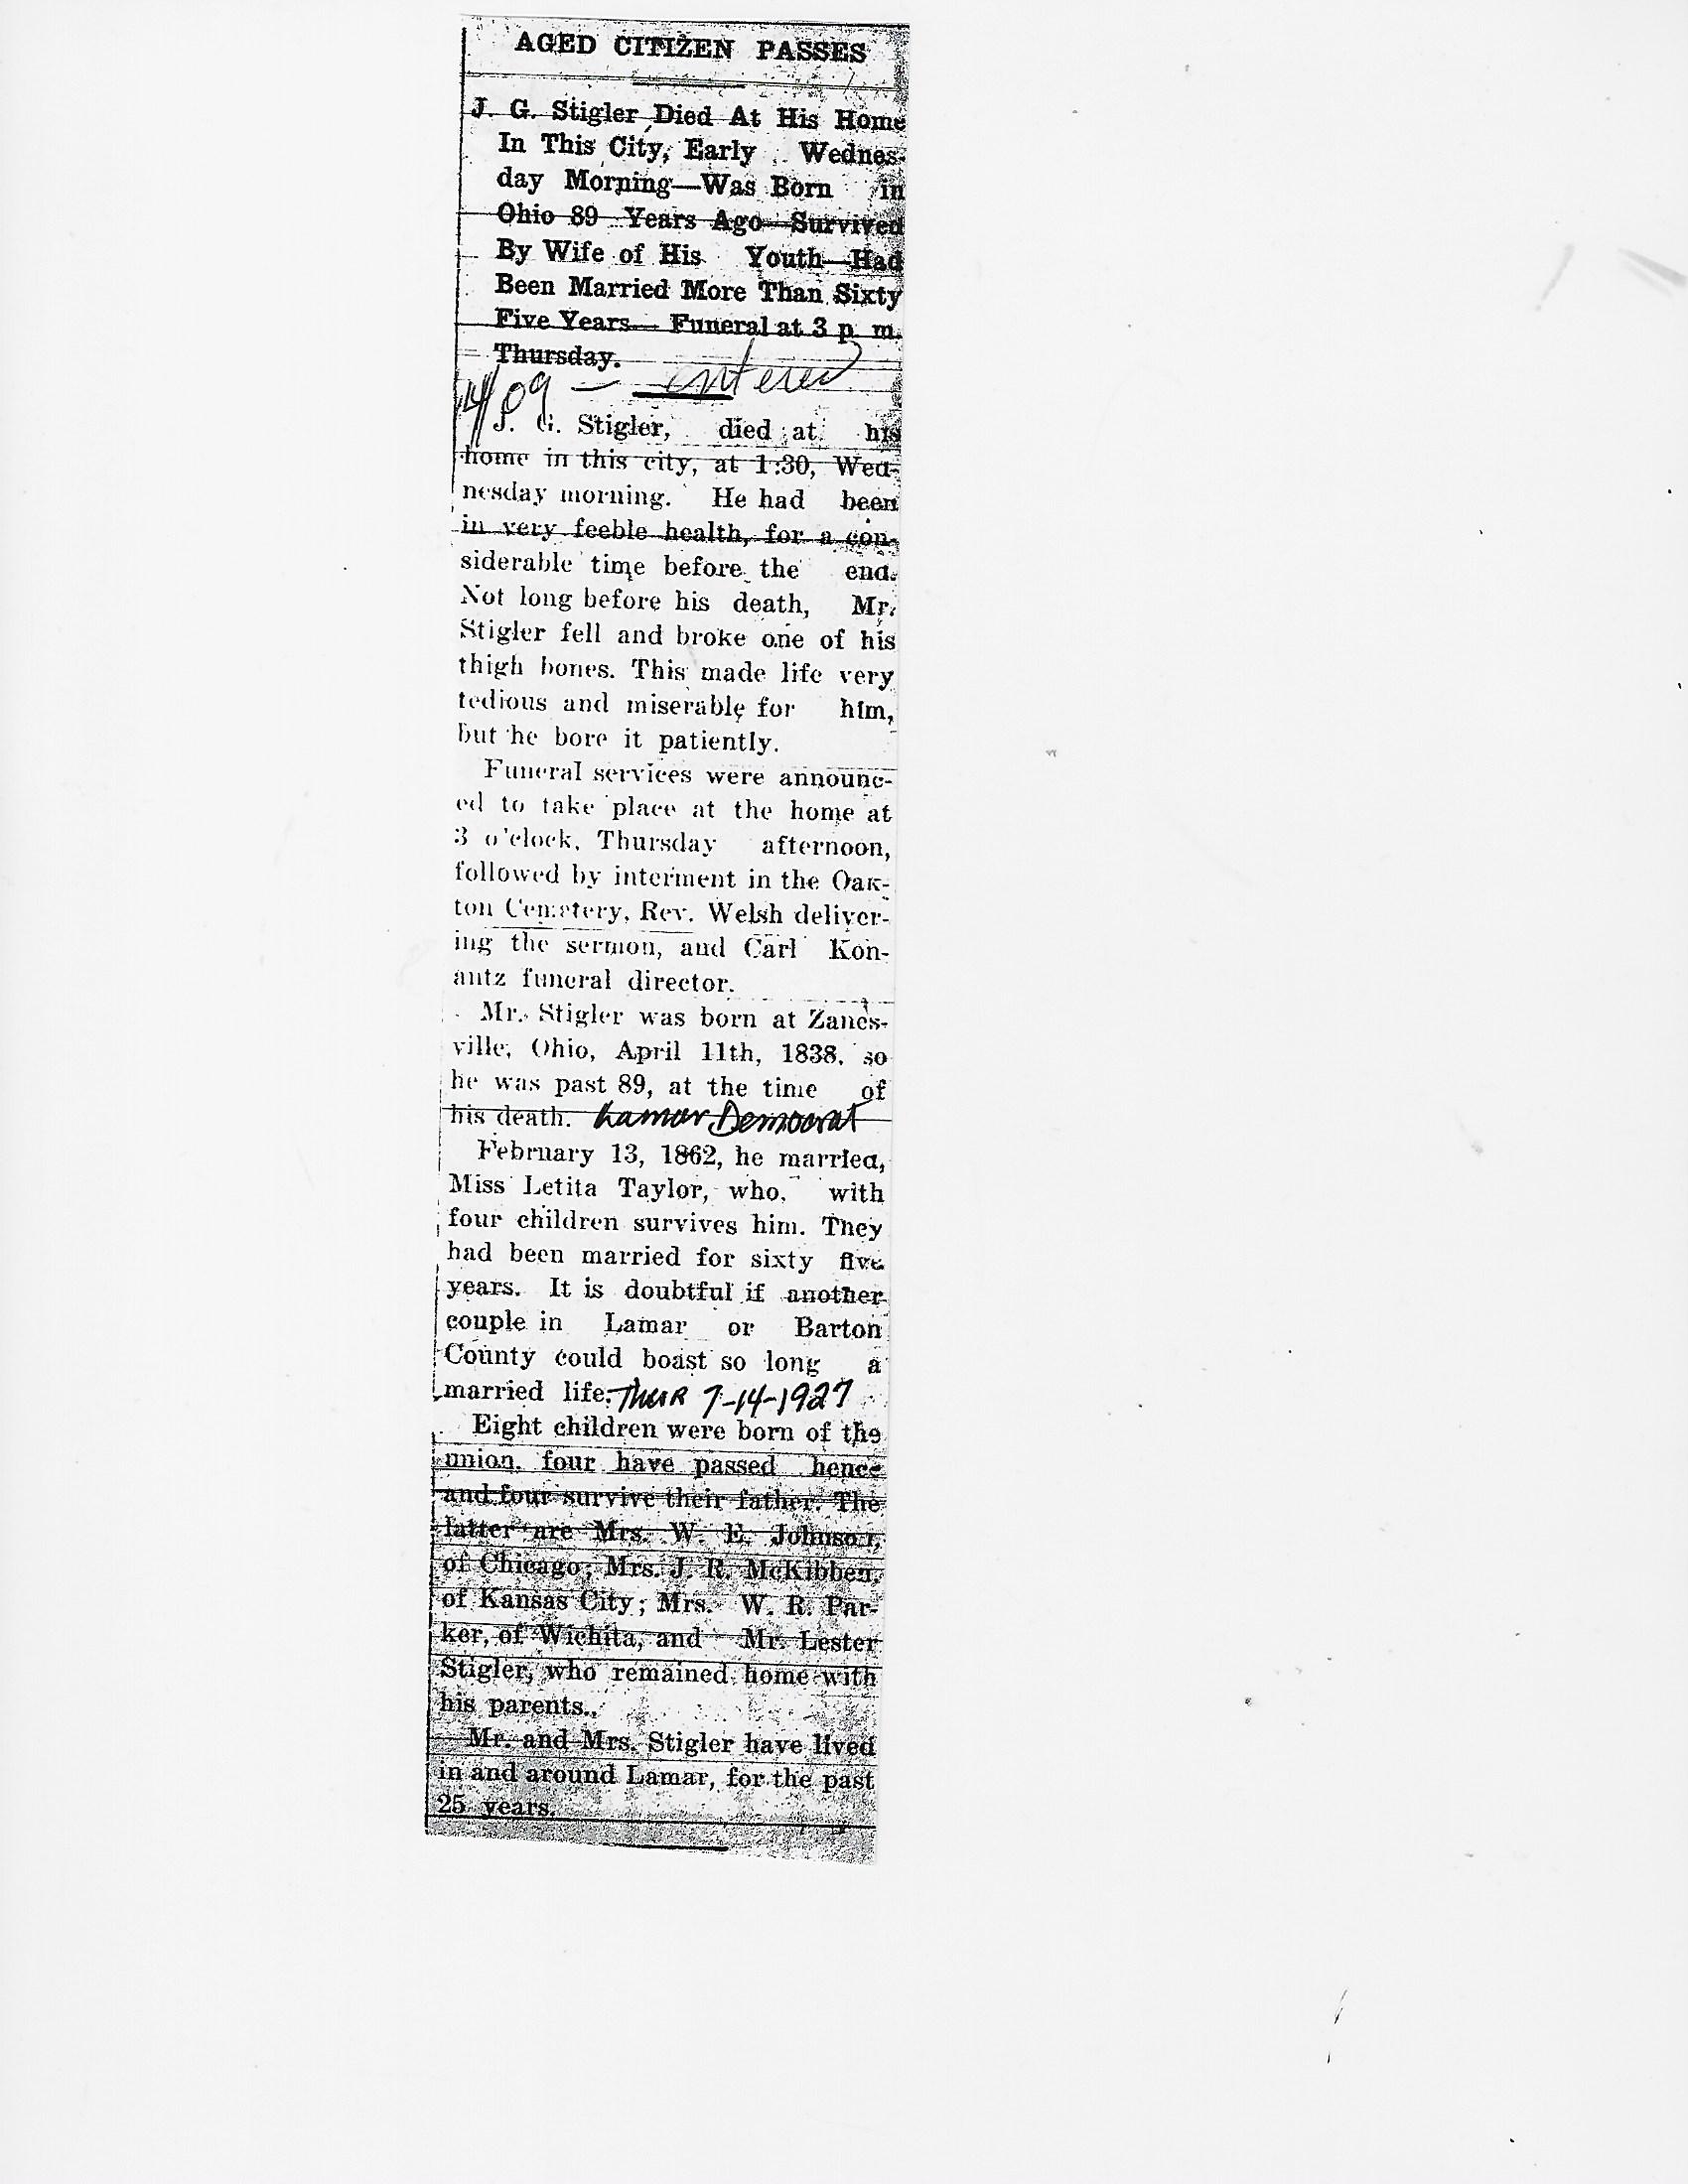 AGED CITIZEN PASSES
J. G. Stigler Died At His Home
In This City, Early Wednes-
day Morning—Was Born in
Ohio 89 Years Ago—Survived
By Wife of His Youth—Had
Been Married More Than Sixty
Five Years— Funeral at 3 p. m.
Thursday.
09 — entered
J. G. Stigler, died at his
home in this city, at 1:30, Wed-
nesday morning. He had been
in very feeble health, for a con-
siderable time before the end.
Not long before his death, Mr.
Stigler fell and broke one of his
thigh bones. This made life very
tedious and miserable for him,
but he bore it patiently.
Funeral services were announc-
ed to take place at the home at
3 o'clock, Thursday afternoon,
followed by interment in the Oak-
ton Cemetery, Rev. Welsh deliver-
ing the sermon, and Carl Kon-
antz funeral director.
Mr. Stigler was born at Zanes-
ville, Ohio, April 11th, 1838, so
he was past 89, at the time of
his death. Lamar Democrat
February 13, 1862, he married,
Miss Letita Taylor, who, with
four children survives him. They
had been married for sixty five
years. It is doubtful if another
couple in Lamar or Barton
County could boast so long a
married life. Thur 7-14-1927
Eight children were born of the
union, four have passed hence
and four survive their father. The
latter are Mrs. W. E. Johnson,
of Chicago; Mrs. J. R. McKibben,
of Kansas City; Mrs. W. R. Par-
ker, of Wichita, and Mr. Lester
Stigler, who remained home with
his parents.
Mr. and Mrs. Stigler have lived
in and around Lamar, for the past
25 years.